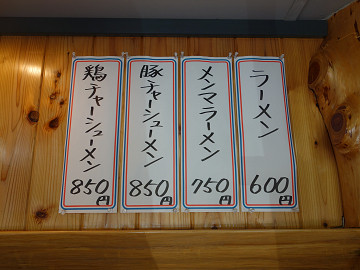 ラーメン
600円
メンマラーメン
750円
豚チャーシューメン
850円
鶏チャーシューメン
850円